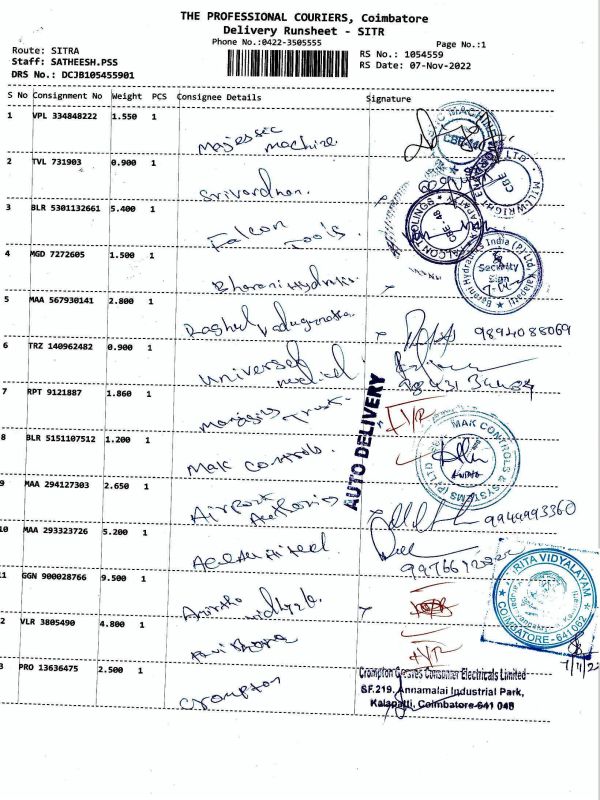 THE PROFESSIONAL COURIERS, Coimbatore
Delivery Runsheet - SITR
Phone No.:0422-3505555
Page No.:1
Route: SITRA
Staff: SATHEESH.PSS
DRS No.: DCJB105455901
RS No.: 1054559
RS Date: 07-Nov-2022
S No Consignment No Weight PCS Consignee Details Signature
1 VPL 334848222 1.550 1 Majessec machine
2 TVL 731903 0.900 1 Srivardhan.
3 BLR 5301132661 5.400 1 Falcon Tools.
4 MGD 7272605 1.500 1 Bharani Hydraulics
5 MAA 567930141 2.800 1
9894088069
6 TRZ 140962482 0.900 1 Universal medical
7 RPT 9121887 1.860 1 Trust.
AUTO DELIVERY
8 BLR 5151107512 1.200 1 Mak Controls.
MAK CONTROLS & SYSTEMS (P) LTD
9 MAA 294127303 2.650 1 Airport Authorities
9944993360
10 MAA 293323726 5.200 1
11 GGN 900028766 9.500 1 Amirtha Vidhyala.
AMRITA VIDYALAYAM
COIMBATORE - 641 062
2 VLR 3805490 4.800 1
3 PRO 13636475 2.500 1 Crompton
Crompton Greaves Consumer Electricals Limited
SF.219, Annamalai Industrial Park,
Kalapatti, Coimbatore-641 048
FALCON TOOLINGS
CBE - 48
MILLWRIGHT
CBE
Barani Hydraulics India (P) Ltd, Kalapatti
Security
Sign